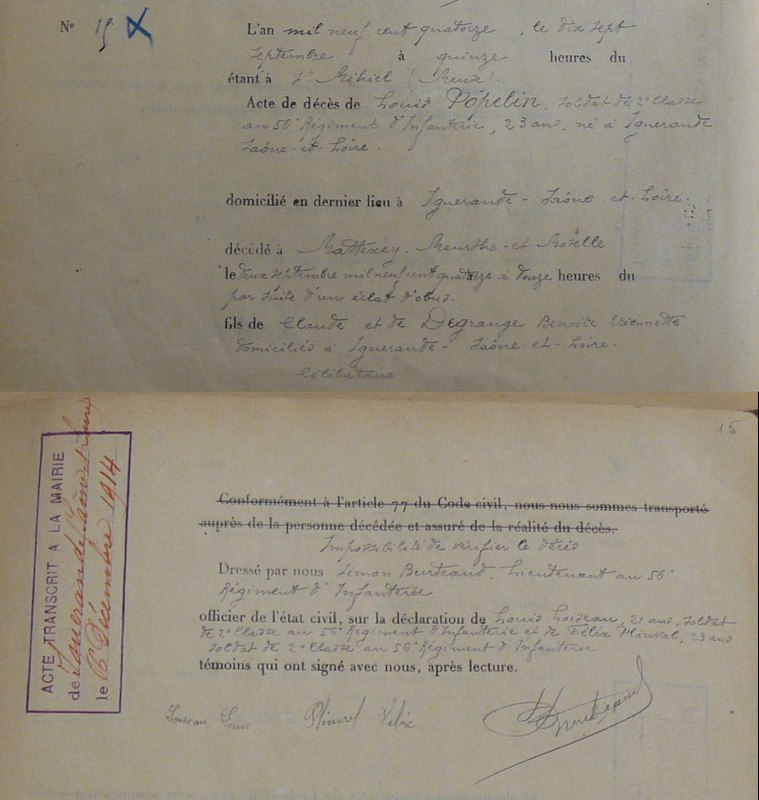 N° 15
L'an mil neuf cent quatorze, le dix sept
septembre à quinze heures du
étant à St Mihiel (Meuse).
Acte de décès de Louis Popelin, soldat de 2e Classe
au 56e Régiment d'Infanterie, 23 ans, né à Iguerande
Saône-et-Loire.
domicilié en dernier lieu à Iguerande - Saône et Loire.
décédé à Mattexey. Meurthe-et-Moselle
le deux septembre mil neuf cent quatorze à douze heures du
par suite d'un éclat d'obus.
fils de Claude et de Degrange Benoite Etiennette
domiciliés à Iguerande - Saône-et-Loire.
Célibataire
15
Conformément à l'article 77 du Code civil, nous nous sommes transporté
auprès de la personne décédée et assuré de la réalité du décès.
Impossibilité de vérifier le décès
Dressé par nous Simon Burteaud, Lieutenant au 56e
Régiment d'Infanterie
officier de l'état civil, sur la déclaration de Louis Loiseau, 21 ans, soldat
de 2e Classe au 56e Régiment d'Infanterie et de Félix Plinval, 23 ans
soldat de 2e Classe au 56e Régiment d'Infanterie
témoins qui ont signé avec nous, après lecture.
Loiseau Louis Plinval Félix
ACTE TRANSCRIT A LA MAIRIE
de Iguerande (Saône et Loire)
le 6 Décembre 1914